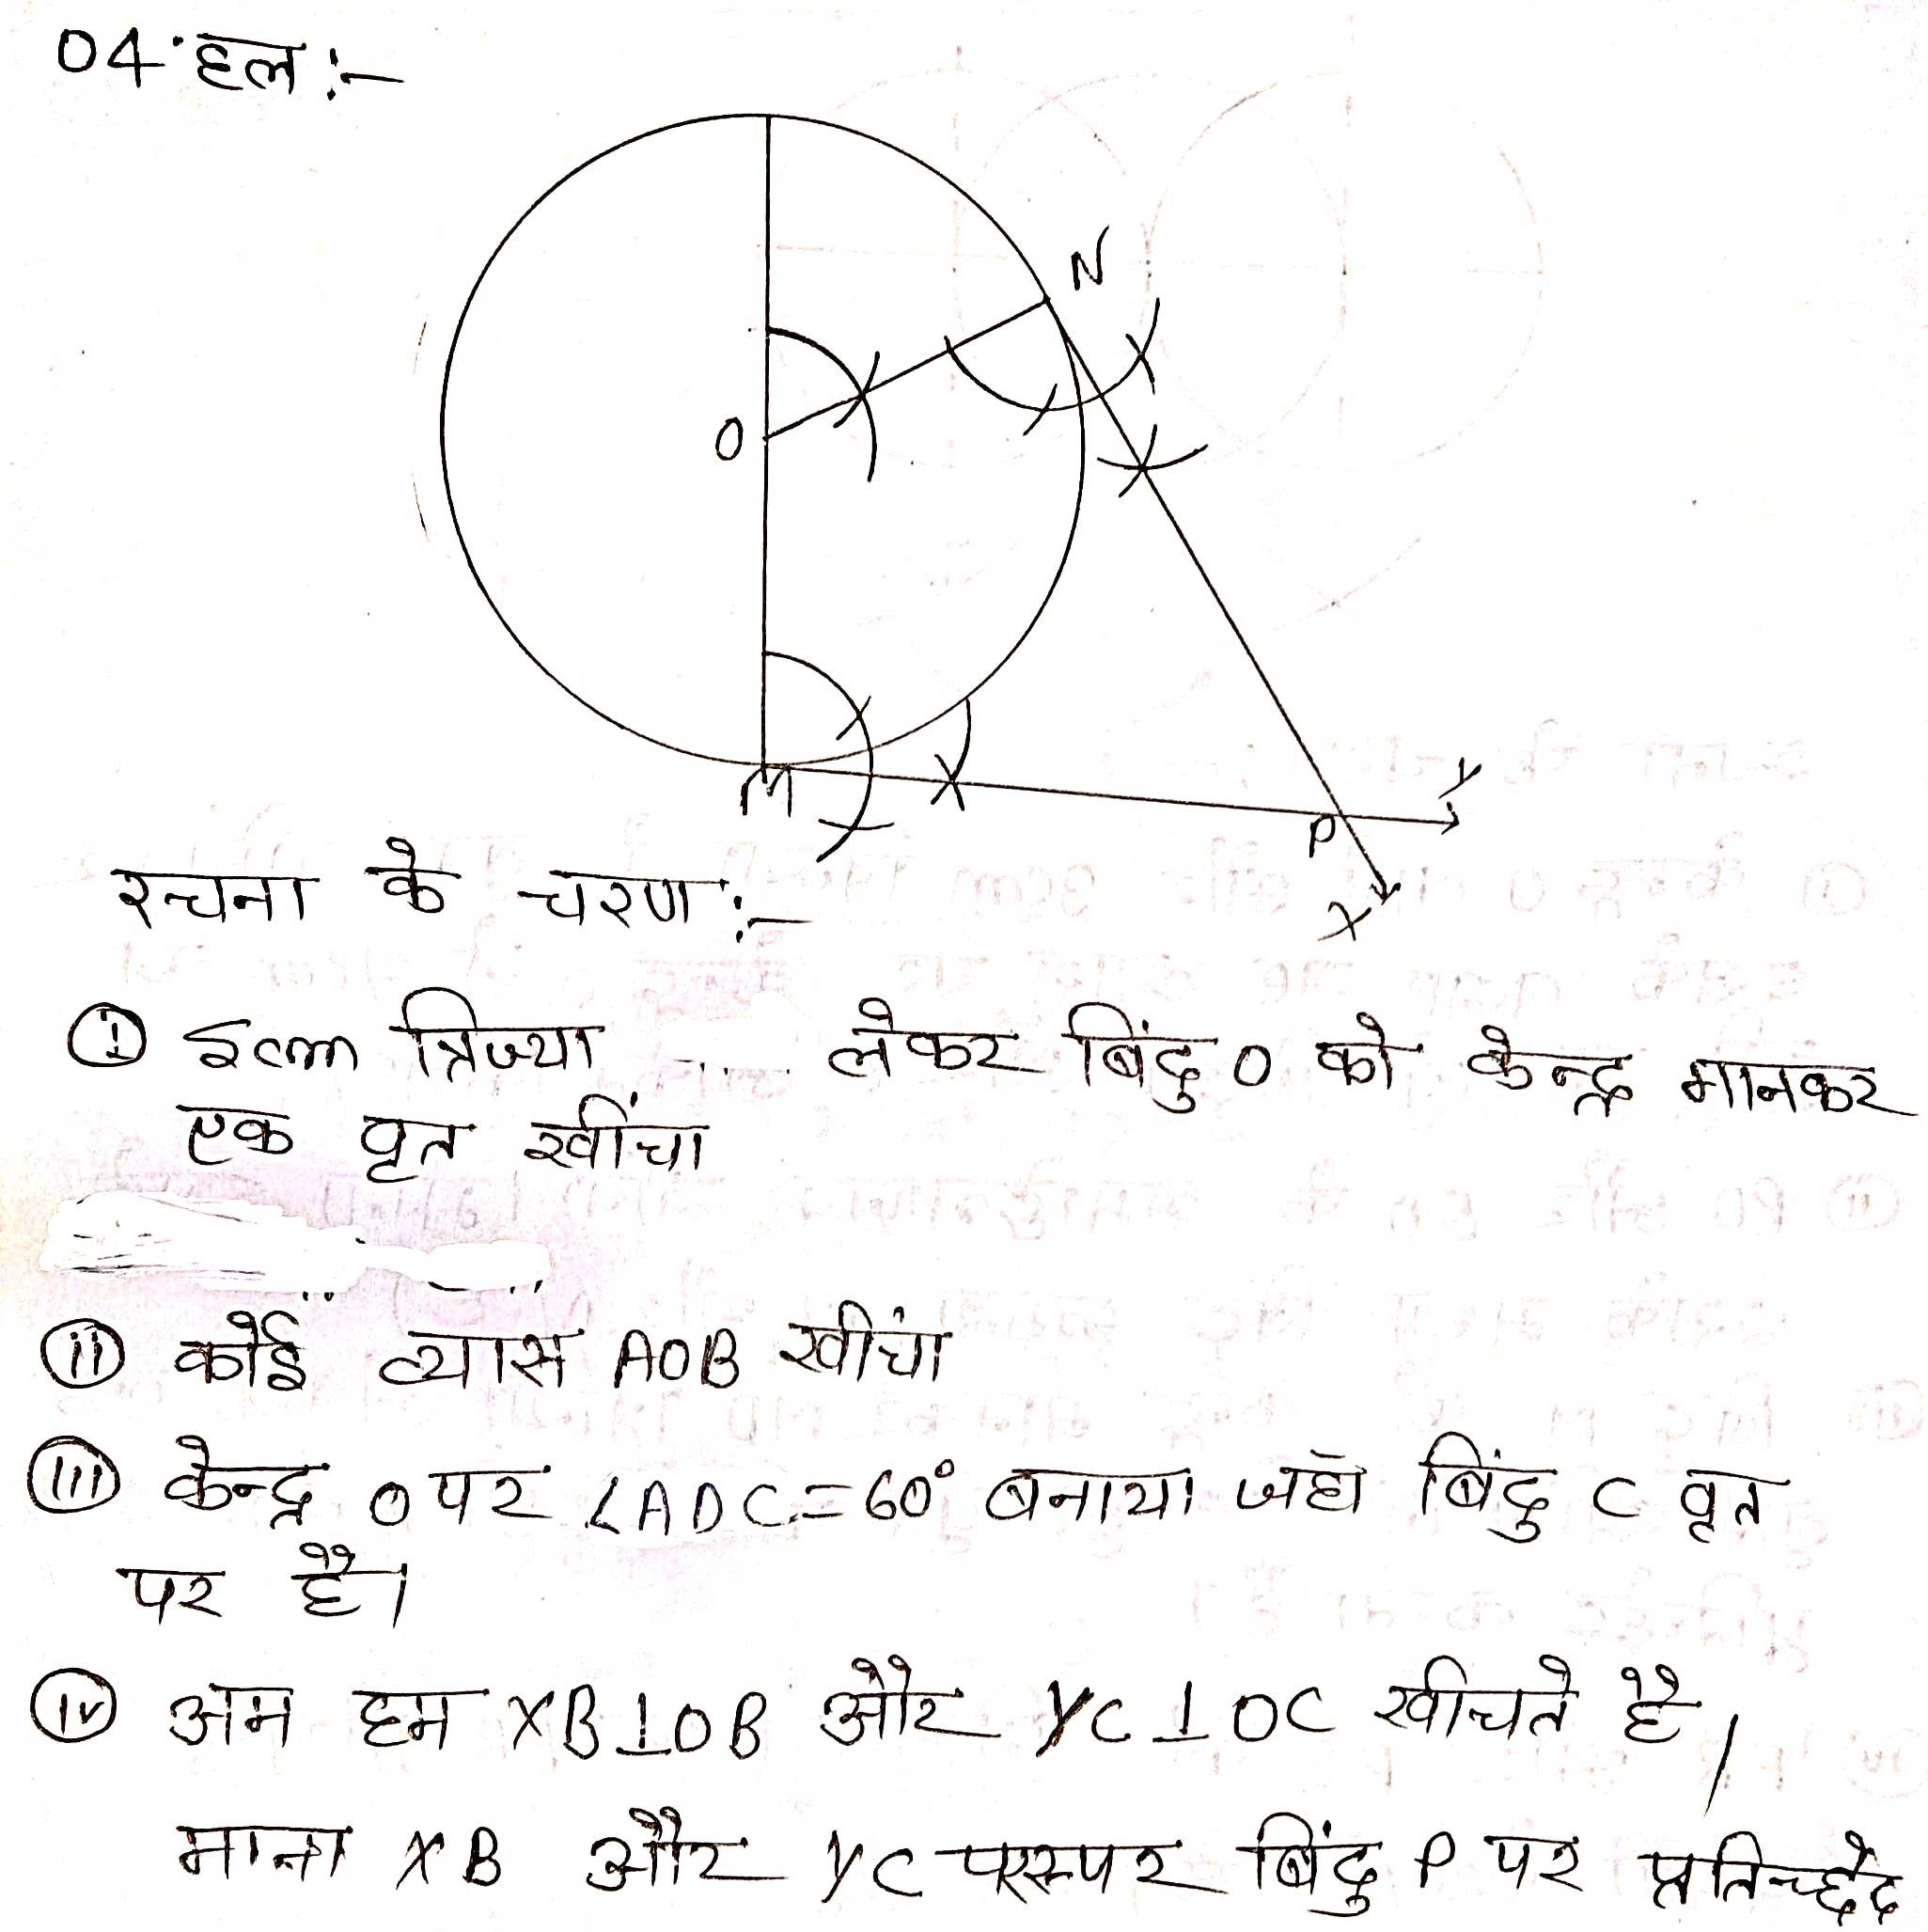 04 हल :-
N
O
M
P
Y
X
रचना के चरण :-
(i) 5cm त्रिज्या लेकर बिंदु O को केन्द्र मानकर
एक वृत खींचा
(ii) कोई व्यास AOB खींचा
(iii) केन्द्र O पर ∠ADC = 60° बनाया जहाँ बिंदु C वृत
पर है।
(iv) अम हम XB⊥OB और YC⊥OC खीचते है।
माना XB और YC परस्पर बिंदु P पर प्रतिच्छेद